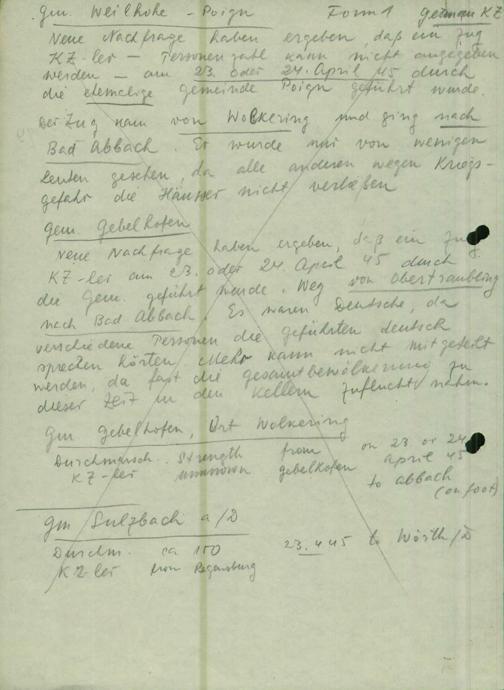 gem. Weilhohe - Poign Form 1 German KZ
Neue Nachfrage haben ergeben, daß ein Zug
KZ-ler - Personenzahl kann nicht angegeben
werden - am 23. oder 24. April 45 durch
die ehemalige gemeinde Poign geführt wurde.
Der Zug kam von Wolkering und ging nach
Bad Abbach. Er wurde nur von wenigen
Leuten gesehen, da alle anderen wegen Kriegs-
gefahr die Häusser nicht verließen
gem. Gebelkofen
Neue Nachfrage haben ergeben, daß ein Zug
KZ-ler am 23. oder 24 April 45 durch
die Gem. geführt wurde. Weg von Obertraubling
nach Bad Abbach. Es waren Deutsche, da
verschiedene Personen die geführten deutsch
sprechen hörten. Mehr kann nicht mitgeteilt
werden, da fast die gesamtbevölkerung zu
dieser Zeit in den Kellern Zuflucht nahm.
gm Gebelhofen, Ort Wolkering
Durchmarsch. Strength from on 23 or 24
KZ-ler unknown gebelkofen april 45
to abbach
(on foot)
gm Sulzbach a/D
Durchm. ca 150 23.4.45 to Wörth/D
KZ-ler from Regensburg